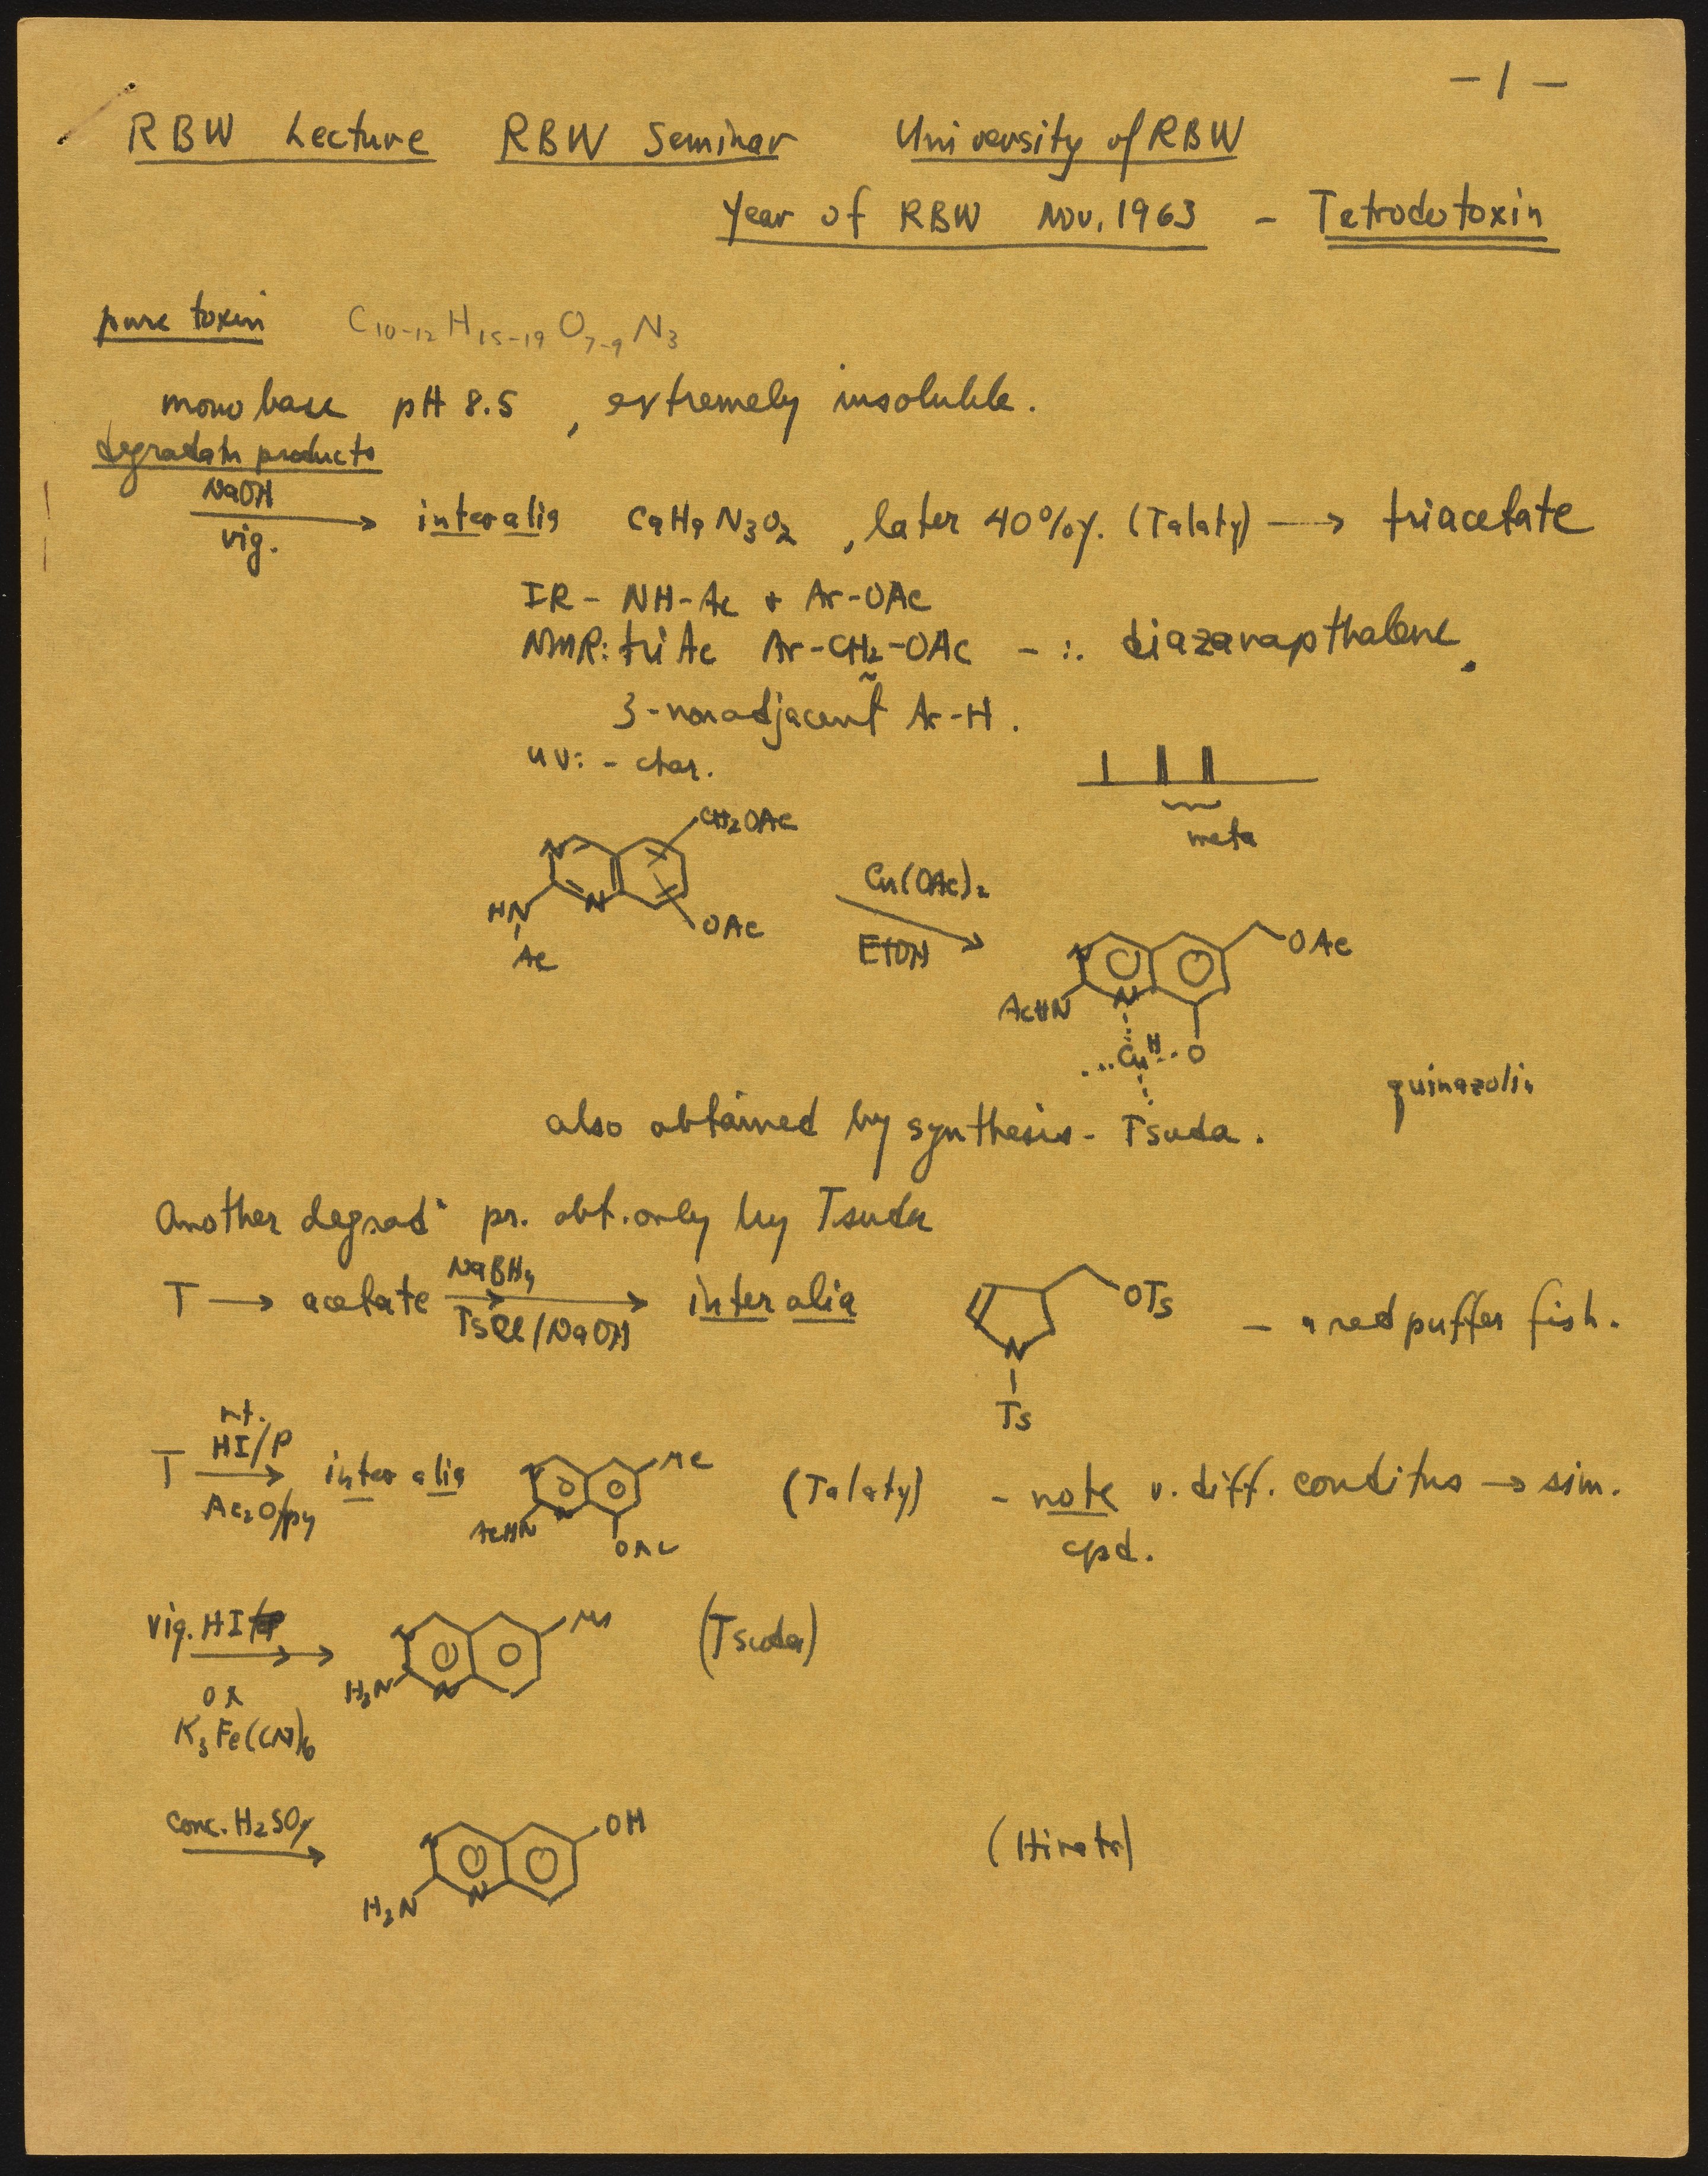 - 1 -
RBW Lecture RBW Seminar University of RBW
Year of RBW Nov. 1963 - Tetrodotoxin
pure toxin C10-12 H15-19 O7-9 N3
mono base pH 8.5 , extremely insoluble.
degradatn products
NaOH
vig.
inter alia C9H9N3O2 , later 40% y. (Talaty) → triacetate
IR - NH-Ac + Ar-OAc
NMR: tri Ac Ar-CH2-OAc - ∴ diazanapthalene.
3-nonadjacent Ar-H.
uv: - char.
meta
CH2OAc
N
N
HN
Ac
OAc
Cu(OAc)2
EtOH
OAc
N
N
AcHN
Cu
O
quinazolin
also obtained by synthesis - Tsuda.
Another degradn pr. obt. only by Tsuda
T → acetate NaBH4 TsCl/NaOH → inter alia
OTs
N
Ts
- red puffer fish.
r.t.
T HI/P → inter alia
Ac2O/py
Me
N
AcHN
OAc
(Talaty) - note v. diff. conditns → sim.
cpd.
vig. HI
or
K3Fe(CN)6
Me
N
H2N
N
(Tsuda)
conc. H2SO4
OH
N
H2N
N
(Hirata)